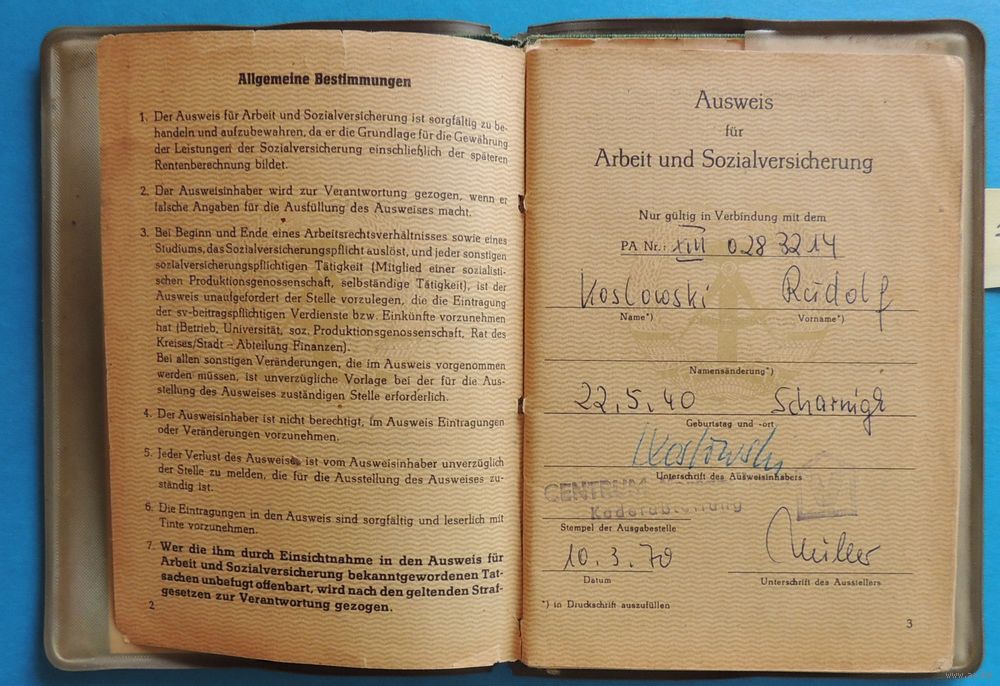 Allgemeine Bestimmungen
1. Der Ausweis für Arbeit und Sozialversicherung ist sorgfältig zu be-
handeln und aufzubewahren, da er die Grundlage für die Gewährung
der Leistungen der Sozialversicherung einschließlich der späteren
Rentenberechnung bildet.
2. Der Ausweisinhaber wird zur Verantwortung gezogen, wenn er
falsche Angaben für die Ausfüllung des Ausweises macht.
3. Bei Beginn und Ende eines Arbeitsrechtsverhältnisses sowie eines
Studiums, das Sozialversicherungspflicht auslöst, und jeder sonstigen
sozialversicherungspflichtigen Tätigkeit (Mitglied einer sozialisti-
schen Produktionsgenossenschaft, selbständige Tätigkeit), ist der
Ausweis unaufgefordert der Stelle vorzulegen, die die Eintragung
der sv-beitragspflichtigen Verdienste bzw. Einkünfte vorzunehmen
hat (Betrieb, Universität, soz. Produktionsgenossenschaft, Rat des
Kreises/Stadt – Abteilung Finanzen).
Bei allen sonstigen Veränderungen, die im Ausweis vorgenommen
werden müssen, ist unverzügliche Vorlage bei der für die Aus-
stellung des Ausweises zuständigen Stelle erforderlich.
4. Der Ausweisinhaber ist nicht berechtigt, im Ausweis Eintragungen
oder Veränderungen vorzunehmen.
5. Jeder Verlust des Ausweises ist vom Ausweisinhaber unverzüglich
der Stelle zu melden, die für die Ausstellung des Ausweises zu-
ständig ist.
6. Die Eintragungen in den Ausweis sind sorgfältig und leserlich mit
Tinte vorzunehmen.
7. Wer die ihm durch Einsichtnahme in den Ausweis für
Arbeit und Sozialversicherung bekanntgewordenen Tat-
sachen unbefugt offenbart, wird nach den geltenden Straf-
gesetzen zur Verantwortung gezogen.
2
Ausweis
für
Arbeit und Sozialversicherung
Nur gültig in Verbindung mit dem
PA Nr.: XIII 028 3214
Koslowski Rudolf
Name*) Vorname*)
Namensänderung*)
22.5.40
Geburtstag und -ort
Koslowski
Unterschrift des Ausweisinhabers
CENTRUM
Kaderabteilung
Stempel der Ausgabestelle
10.3.70 Müller
Datum Unterschrift des Ausstellers
*) in Druckschrift auszufüllen
3